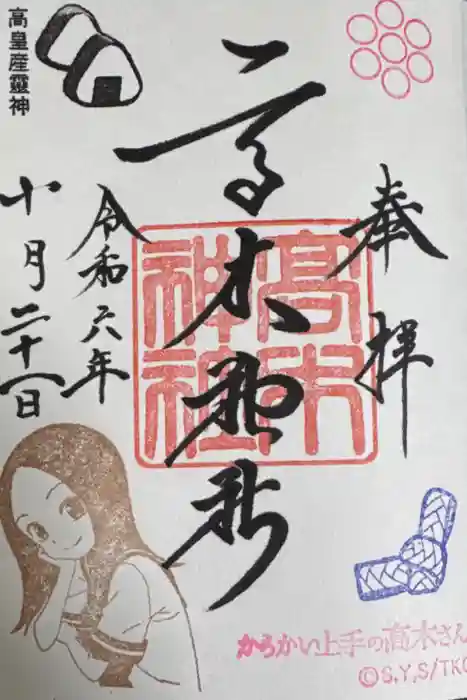 奉拝
高木神社
高木神社
令和六年
十月二十一日
高皇産靈神
からかい上手の高木さん
©S.Y,S/TKC